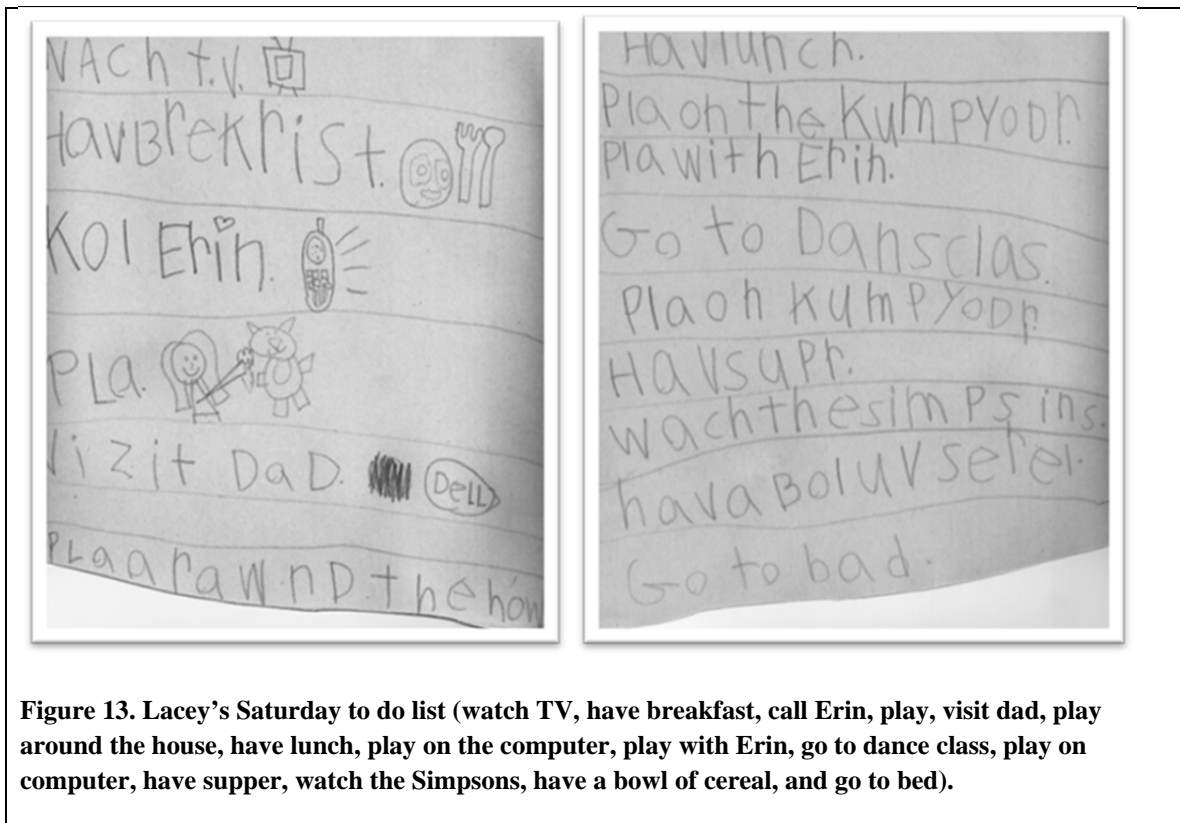 WACh t.v.
HavBrekrist.
Kol Erin.
PLa.
Vizit DaD. DeLL
PLa arawnD the how
Havlunch.
Pla on the KumpYodr.
Pla with Erin.
Go to Dansclas.
Pla on KumpYodr.
Havsupr.
wachthesimpsins.
hava BoluV serel.
Go to bad.
Figure 13. Lacey’s Saturday to do list (watch TV, have breakfast, call Erin, play, visit dad, play
around the house, have lunch, play on the computer, play with Erin, go to dance class, play on
computer, have supper, watch the Simpsons, have a bowl of cereal, and go to bed).